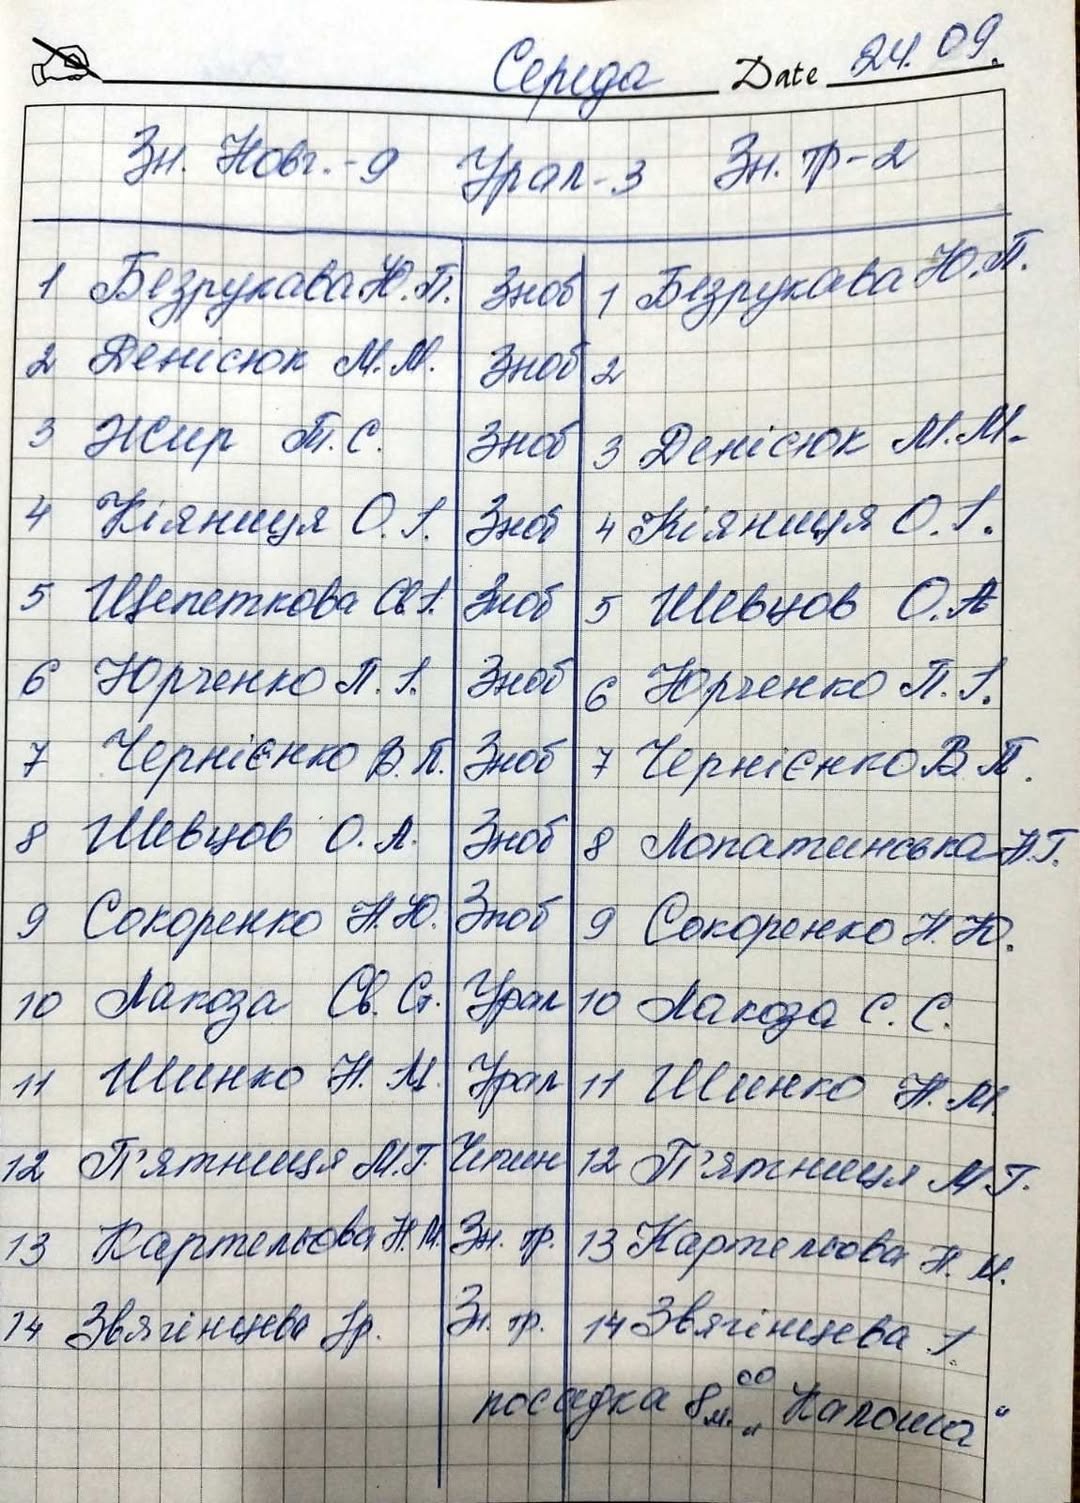 Середа Date 24.09.
Зн. Новг.-9 Урал-3 Зн. тр-2
1 Безрукава Ю.П. Зноб 1 Безрукава Ю.П.
2 Денісюк М.М. Зноб 2
3 Жир Т.С. Зноб 3 Денісюк М.М.
4 Кіяниця О.І. Зноб 4 Кіяниця О.І.
5 Щепеткова Св.І. Зноб 5 Шевцов О.А
6 Юрченко П.І. Зноб 6 Юрченко П.І.
7 Чернієнко В.П. Зноб 7 Чернієнко В.П.
8 Шевцов О.А. Зноб 8 Лопатинська Н.Г.
9 Сокоренко Н.Ю. Зноб 9 Сокоренко Н.Ю.
10 Лакоза Св. Ст. Урал 10 Лакоза С.С.
11 Шинко Н.М. Урал 11 Шинко Н.М.
12 П'ятниця М.Г. 12 П'ятниця М.Г.
13 Картельова Н.М. Зн. тр. 13 Картельова Н.М.
14 Звягінцева Ір. Зн. тр. 14 Звягінцева І.
посадка 8 00 м. "Калоша"